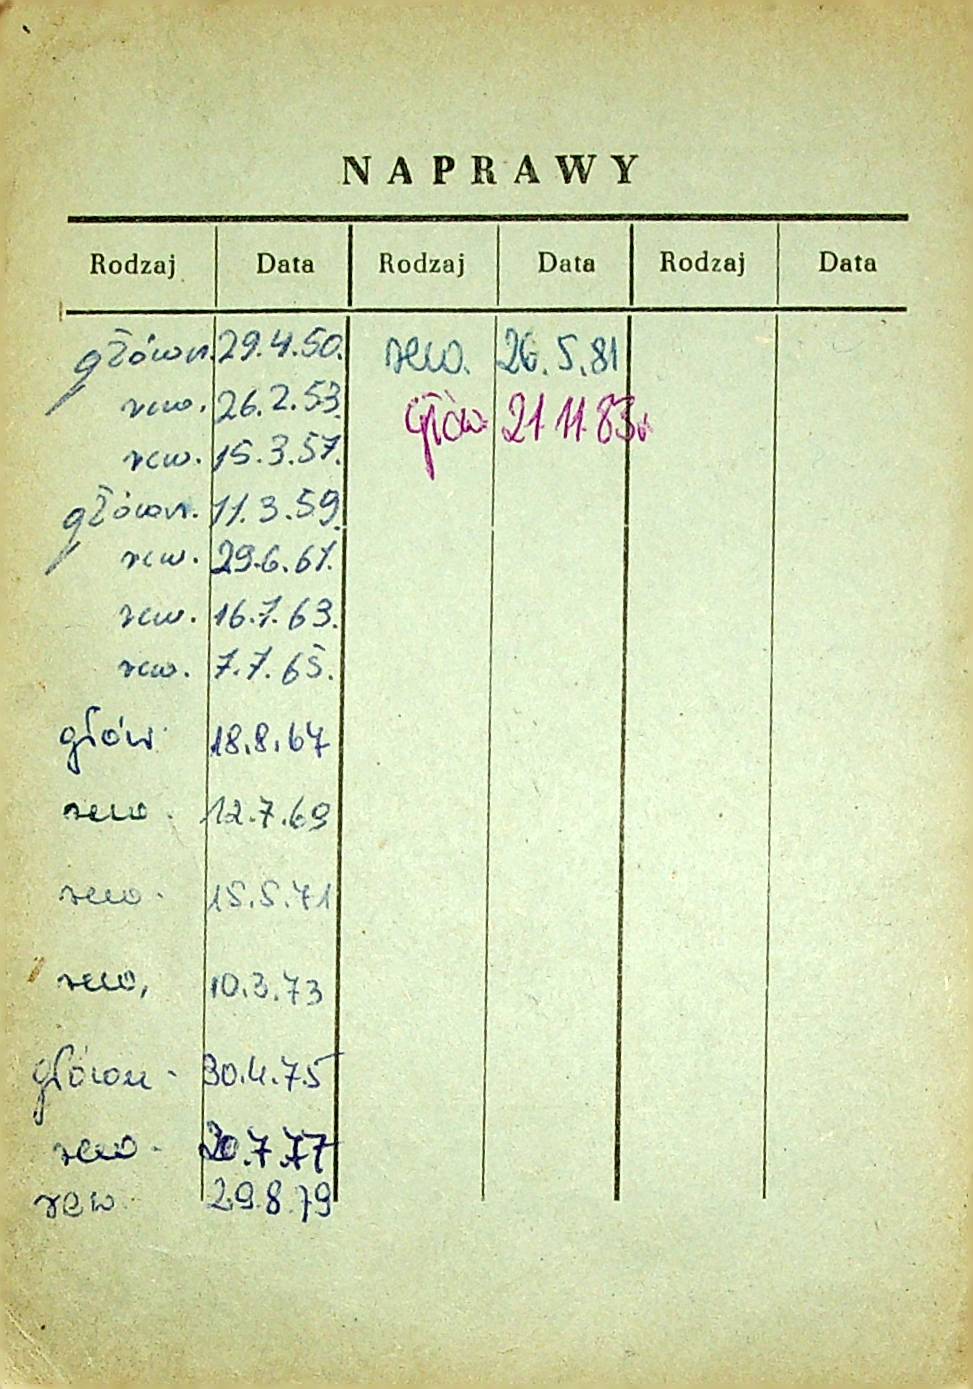 NAPRAWY
Rodzaj Data Rodzaj Data Rodzaj Data
główn. 29.4.50. rew. 26.5.81
rew. 26.2.53. główn. 21.11.83r
rew. 15.3.57.
główn. 11.3.59.
rew. 29.6.61.
rew. 16.7.63.
rew. 7.7.65.
główn. 18.8.67
rew. 12.7.69
rew. 15.5.71
rew, 10.3.73
główn. 30.4.75
rew. 20.7.77
rew 29.8.79